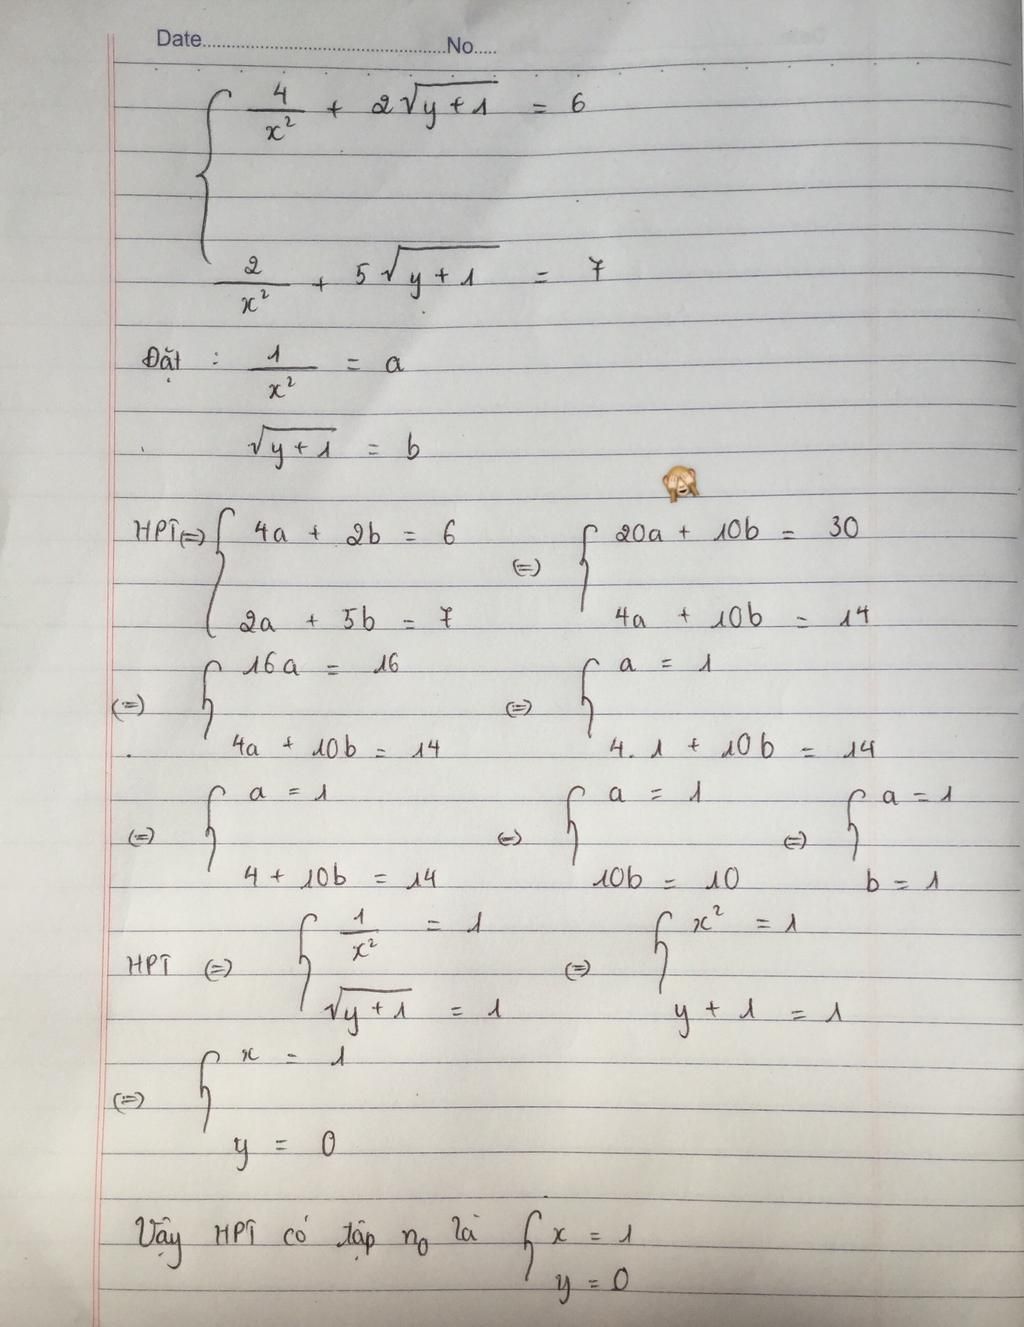 Date..............................No.....
4/x² + 2√(y + 1) = 6
2/x² + 5√(y + 1) = 7
Đặt : 1/x² = a
√(y + 1) = b
HPT (=) { 4a + 2b = 6 (=) { 20a + 10b = 30
2a + 5b = 7 4a + 10b = 14
(=) { 16a = 16 (=) { a = 1
4a + 10b = 14 4. 1 + 10b = 14
(=) { a = 1 (=) { a = 1 (=) { a = 1
4 + 10b = 14 10b = 10 b = 1
HPT (=) { 1/x² = 1 (=) { x² = 1
√(y + 1) = 1 y + 1 = 1
(=) { x = 1
y = 0
Vậy HPT có tập n₀ là { x = 1
y = 0